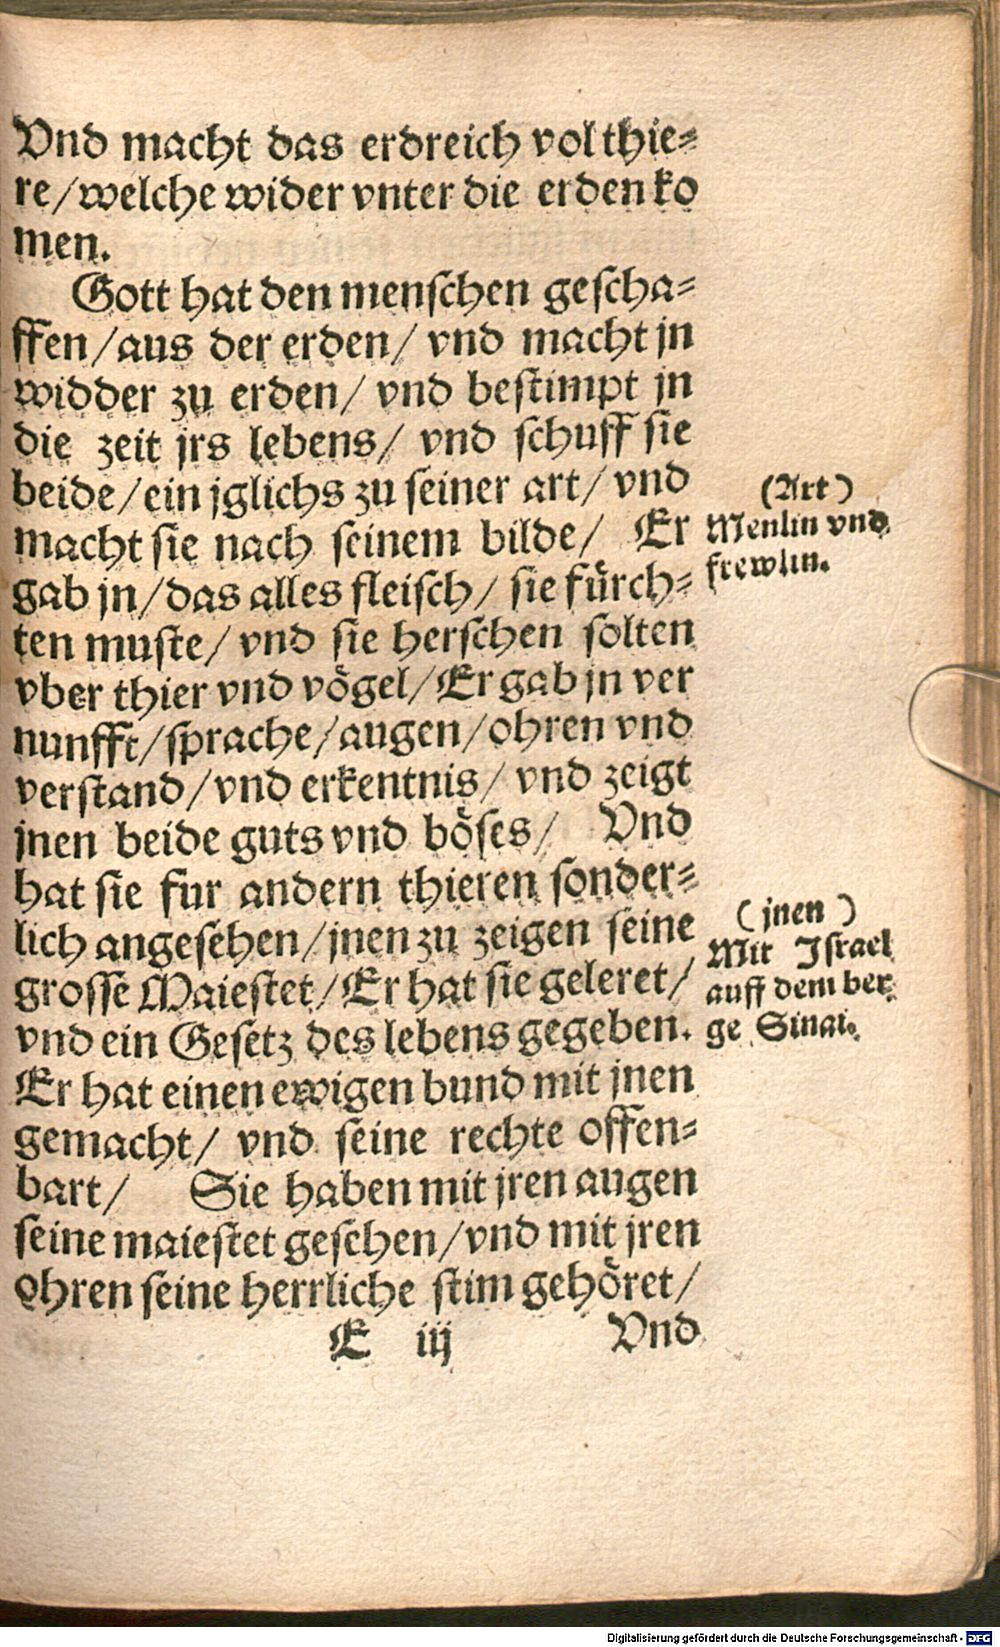 Vnd macht das erdreich vol thie⸗
re/welche wider vnter die erden ko
men.
Gott hat den menschen gescha⸗
ffen/aus der erden/ vnd macht jn
widder zu erden/ vnd bestimpt jn
die zeit jrs lebens/ vnd schuff sie
beide/ein jglichs zu seiner art/ vnd
macht sie nach seinem bilde/ Er
gab jn/das alles fleisch/ sie fürch⸗
ten muste/ vnd sie herschen solten
vber thier vnd vögel/Er gab jn ver
nunfft/sprache/augen/ohren vnd
verstand/vnd erkentnis/ vnd zeigt
jnen beide guts vnd böses/ Vnd
hat sie fur andern thieren sonder⸗
lich angesehen/jnen zu zeigen seine
grosse Maiestet/Er hat sie geleret/
vnd ein Gesetz des lebens gegeben.
Er hat einen ewigen bund mit jnen
gemacht/ vnd seine rechte offen⸗
bart/ Sie haben mit jren augen
seine maiestet gesehen/vnd mit jren
ohren seine herrliche stim gehöret/
E iij Vnd
(Art)
Menlin vnd
frewlin.
(jnen)
Mit Israel
auff dem ber⸗
ge Sinai.
Digitalisierung gefördert durch die Deutsche Forschungsgemeinschaft - DFG